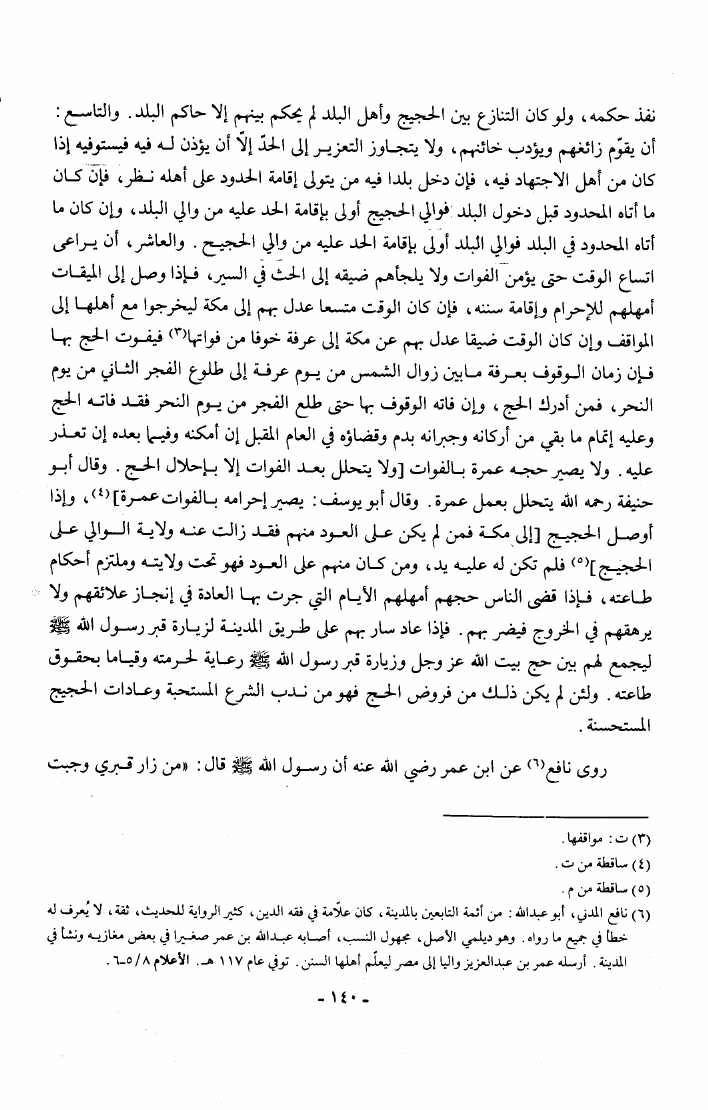 نفذ حكمه، ولو كان التنازع بين الحجيج وأهل البلد لم يحكم بينهم إلا حاكم البلد. والتاسع:
أن يقوّم زائغهم ويؤدب خائنهم، ولا يتجاوز التعزير إلى الحدّ إلاّ أن يؤذن له فيه فيستوفيه إذا
كان من أهل الاجتهاد فيه، فإن دخل بلدا فيه من يتولى إقامة الحدود على أهله نظر، فإن كان
ما أتاه المحدود قبل دخول البلد فوالي الحجيج أولى بإقامة الحد عليه من والي البلد، وإن كان ما
أتاه المحدود في البلد فوالي البلد أولى بإقامة الحد عليه من والي الحجيج. والعاشر، أن يراعى
اتساع الوقت حتى يؤمن الفوات ولا يلجأهم ضيقه إلى الحث في السير، فإذا وصل إلى الميقات
أمهلهم للإحرام وإقامة سننه، فإن كان الوقت متسعا عدل بهم إلى مكة ليخرجوا مع أهلها إلى
المواقف وإن كان الوقت ضيقا عدل بهم عن مكة إلى عرفة خوفا من فواتها(٣) فيفوت الحج بها
فإن زمان الوقوف بعرفة مابين زوال الشمس من يوم عرفة إلى طلوع الفجر الثاني من يوم
النحر، فمن أدرك الحج، وإن فاته الوقوف بها حتى طلع الفجر من يوم النحر فقد فاته الحج
وعليه إتمام ما بقي من أركانه وجبرانه بدم وقضاؤه في العام المقبل إن أمكنه وفيما بعده إن تعذر
عليه. ولا يصير حجه عمرة بالفوات [ولا يتحلل بعد الفوات إلا بإحلال الحج. وقال أبو
حنيفة رحمه الله يتحلل بعمل عمرة. وقال أبو يوسف: يصير إحرامه بالفوات عمرة](٤)، وإذا
أوصل الحجيج [إلى مكة فمن لم يكن على العود منهم فقد زالت عنه ولاية الوالي على
الحجيج](٥) فلم تكن له عليه يد، ومن كان منهم على العود فهو تحت ولايته وملتزم أحكام
طاعته، فإذا قضى الناس حجهم أمهلهم الأيام التي جرت بها العادة في إنجاز علائقهم ولا
يرهقهم في الخروج فيضر بهم. فإذا عاد سار بهم على طريق المدينة لزيارة قبر رسول الله ﷺ
ليجمع لهم بين حج بيت الله عز وجل وزيارة قبر رسول الله ﷺ رعاية لحرمته وقياما بحقوق
طاعته. ولئن لم يكن ذلك من فروض الحج فهو من ندب الشرع المستحبة وعادات الحجيج
المستحسنة.
روى نافع(٦) عن ابن عمر رضي الله عنه أن رسول الله ﷺ قال: «من زار قبري وجبت
(٣) ت: مواقفها.
(٤) ساقطة من ت.
(٥) ساقطة من م.
(٦) نافع المدني، أبو عبدالله: من أئمة التابعين بالمدينة، كان علاّمة في فقه الدين، كثير الرواية للحديث، ثقة، لا يُعرف له
خطأ في جميع ما رواه. وهو ديلمي الأصل، مجهول النسب، أصابه عبدالله بن عمر صغيرا في بعض مغازيه ونشأ في
المدينة. أرسله عمر بن عبدالعزيز واليا إلى مصر ليعلّم أهلها السنن. توفي عام ١١٧ هـ. الأعلام ٨/ ٥-٦.
- ١٤٠ -